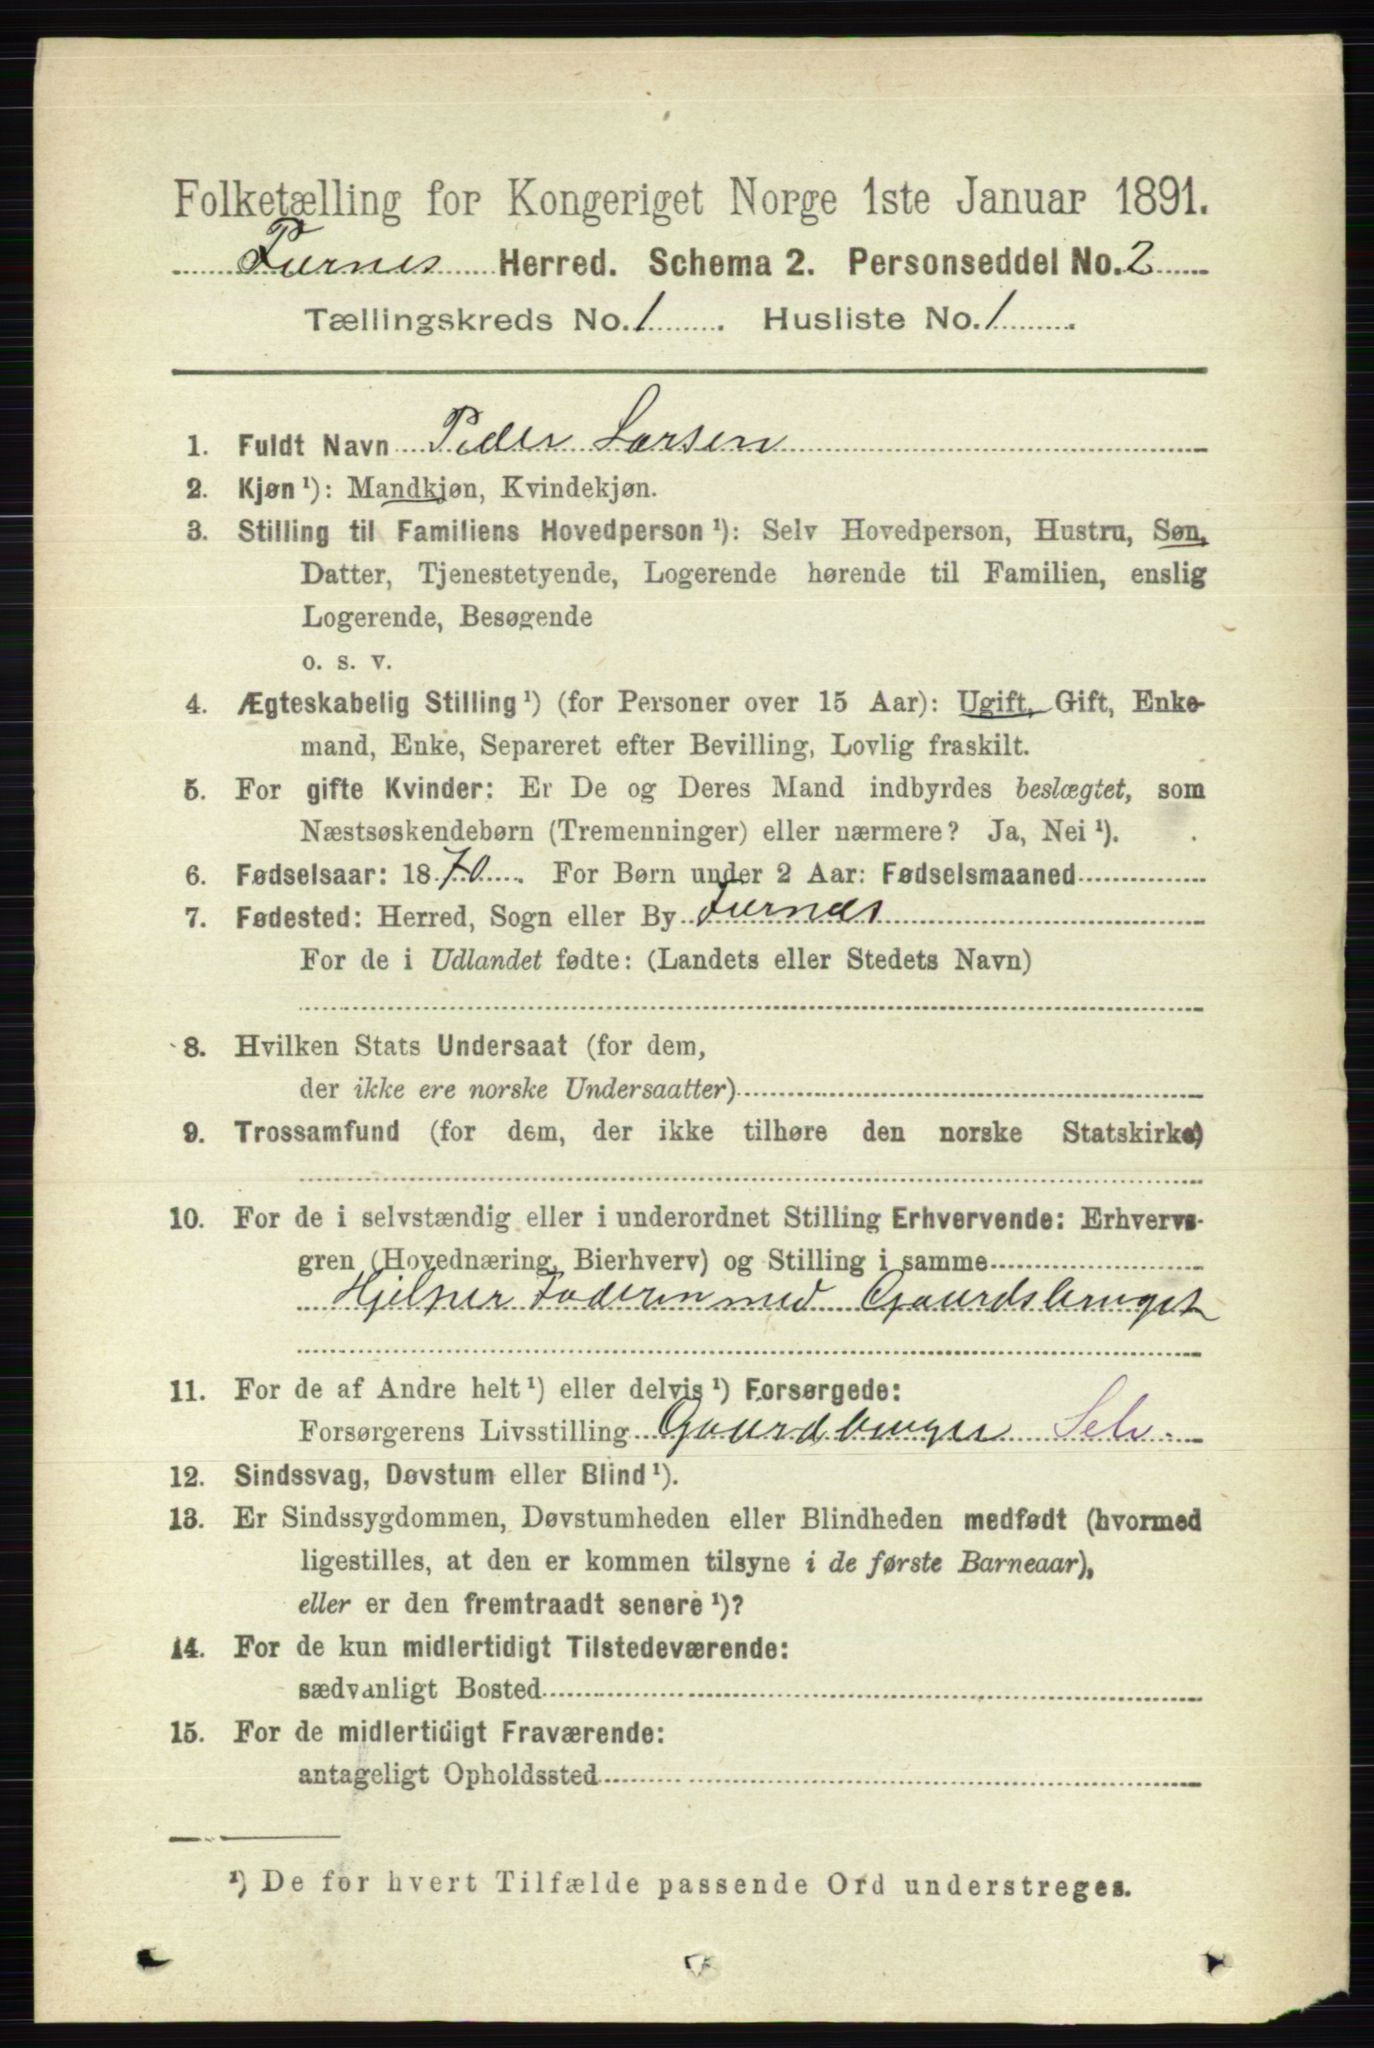 Folketælling for Kongeriget Norge 1ste Januar 1891.
Furnes Herred. Schema 2. Personseddel No. 2
Tællingskreds No. 1. Husliste No. 1.
1. Fuldt Navn Peder Larsen
2. Kjøn ¹): Mandkjøn, Kvindekjøn.
3. Stilling til Familiens Hovedperson ¹): Selv Hovedperson, Hustru, Søn,
Datter, Tjenestetyende, Logerende hørende til Familien, enslig
Logerende, Besøgende
o. s. v.
4. Ægteskabelig Stilling ¹) (for Personer over 15 Aar): Ugift, Gift, Enke-
mand, Enke, Separeret efter Bevilling, Lovlig fraskilt.
5. For gifte Kvinder: Er De og Deres Mand indbyrdes beslægtet, som
Næstsøskendebørn (Tremenninger) eller nærmere? Ja, Nei ¹).
6. Fødselsaar: 1870. For Børn under 2 Aar: Fødselsmaaned
7. Fødested: Herred, Sogn eller By Furnæs
For de i Udlandet fødte: (Landets eller Stedets Navn)
8. Hvilken Stats Undersaat (for dem,
der ikke ere norske Undersaatter)
9. Trossamfund (for dem, der ikke tilhøre den norske Statskirke)
10. For de i selvstændig eller i underordnet Stilling Erhvervende: Erhvervs-
gren (Hovednæring, Bierhverv) og Stilling i samme
Hjelper Faderen med Gaardsbruget
11. For de af Andre helt ¹) eller delvis ¹) Forsørgede:
Forsørgerens Livsstilling Gaardbruger Selv.
12. Sindssvag, Døvstum eller Blind ¹).
13. Er Sindssygdommen, Døvstumheden eller Blindheden medfødt (hvormed
ligestilles, at den er kommen tilsyne i de første Barneaar),
eller er den fremtraadt senere ¹)?
14. For de kun midlertidigt Tilstedeværende:
sædvanligt Bosted
15. For de midlertidigt Fraværende:
antageligt Opholdssted
¹) De for hvert Tilfælde passende Ord understreges.